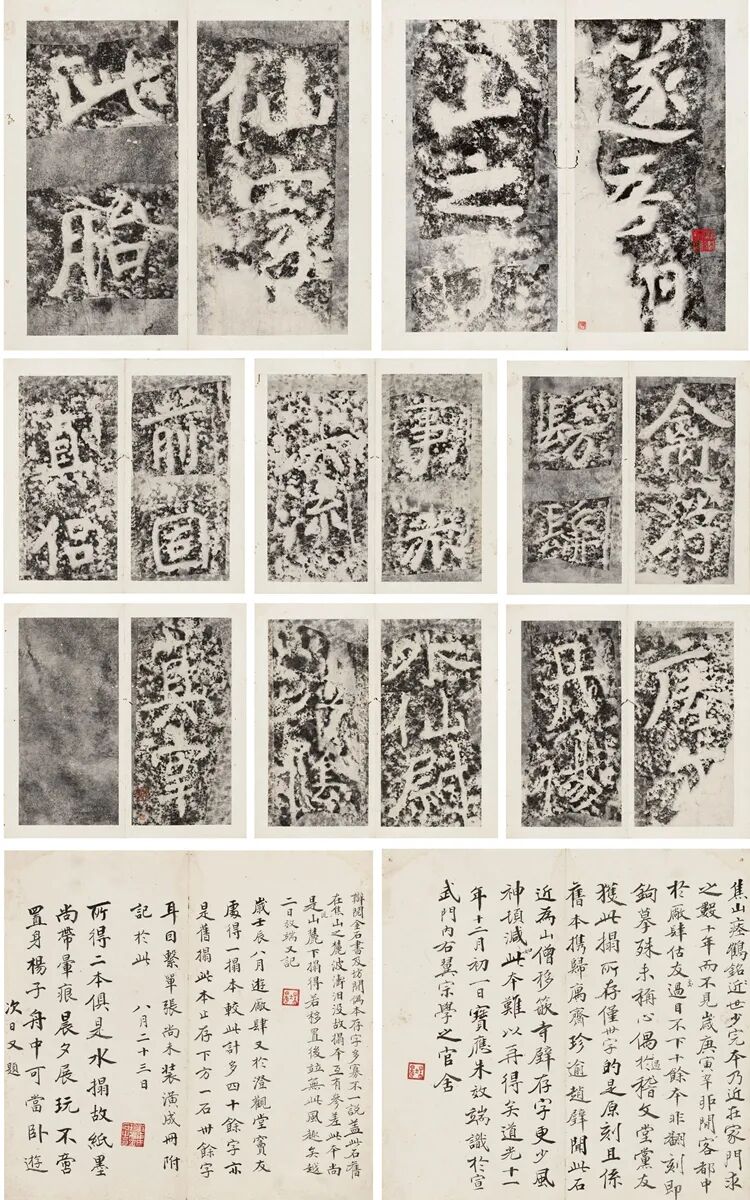 遂吾
山之下
仙家
此胎
禽浮
髣髴
事亦
洪流
前固
真侶
丹楊
外仙尉
江陰
真宰
焦山瘞鶴銘近世少完本乃近在家門求
之數十年而不見歲庚寅辛卯間客都中
於厰肆估友過目不下十餘本非翻刻即
鉤摹殊未稱心偶於稽文堂黨友
獲此搨所存僅卅字的是原刻且係
舊本攜歸寓齋珍逾趙璧聞此石
近為山僧移嵌寺壁存字更少風
神頓減此本難以再得矣道光十一
年十二月初一日寶應朱攷端識於宣
武門內右翼宗學之官舍
聯閱金石書及坊間偶本存字多寡不一說蓋此石舊
在焦山之麓波濤汨沒故搨本互有參差此本尚
是山麓下搨得若移置後竝無此風趣矣越
二日攷端又記
歲壬辰八月遊厰肆又於澄觀堂賓友
處得一搨本較此計多四十餘字亦
是舊搨此本止存下方一石卅餘字
耳因繫單張尚未裝潢成冊附
記於此　八月二十三日
所得二本俱是水搨故紙墨
尚帶暈痕晨夕展玩不啻
置身楊子舟中可當臥遊
次日又題